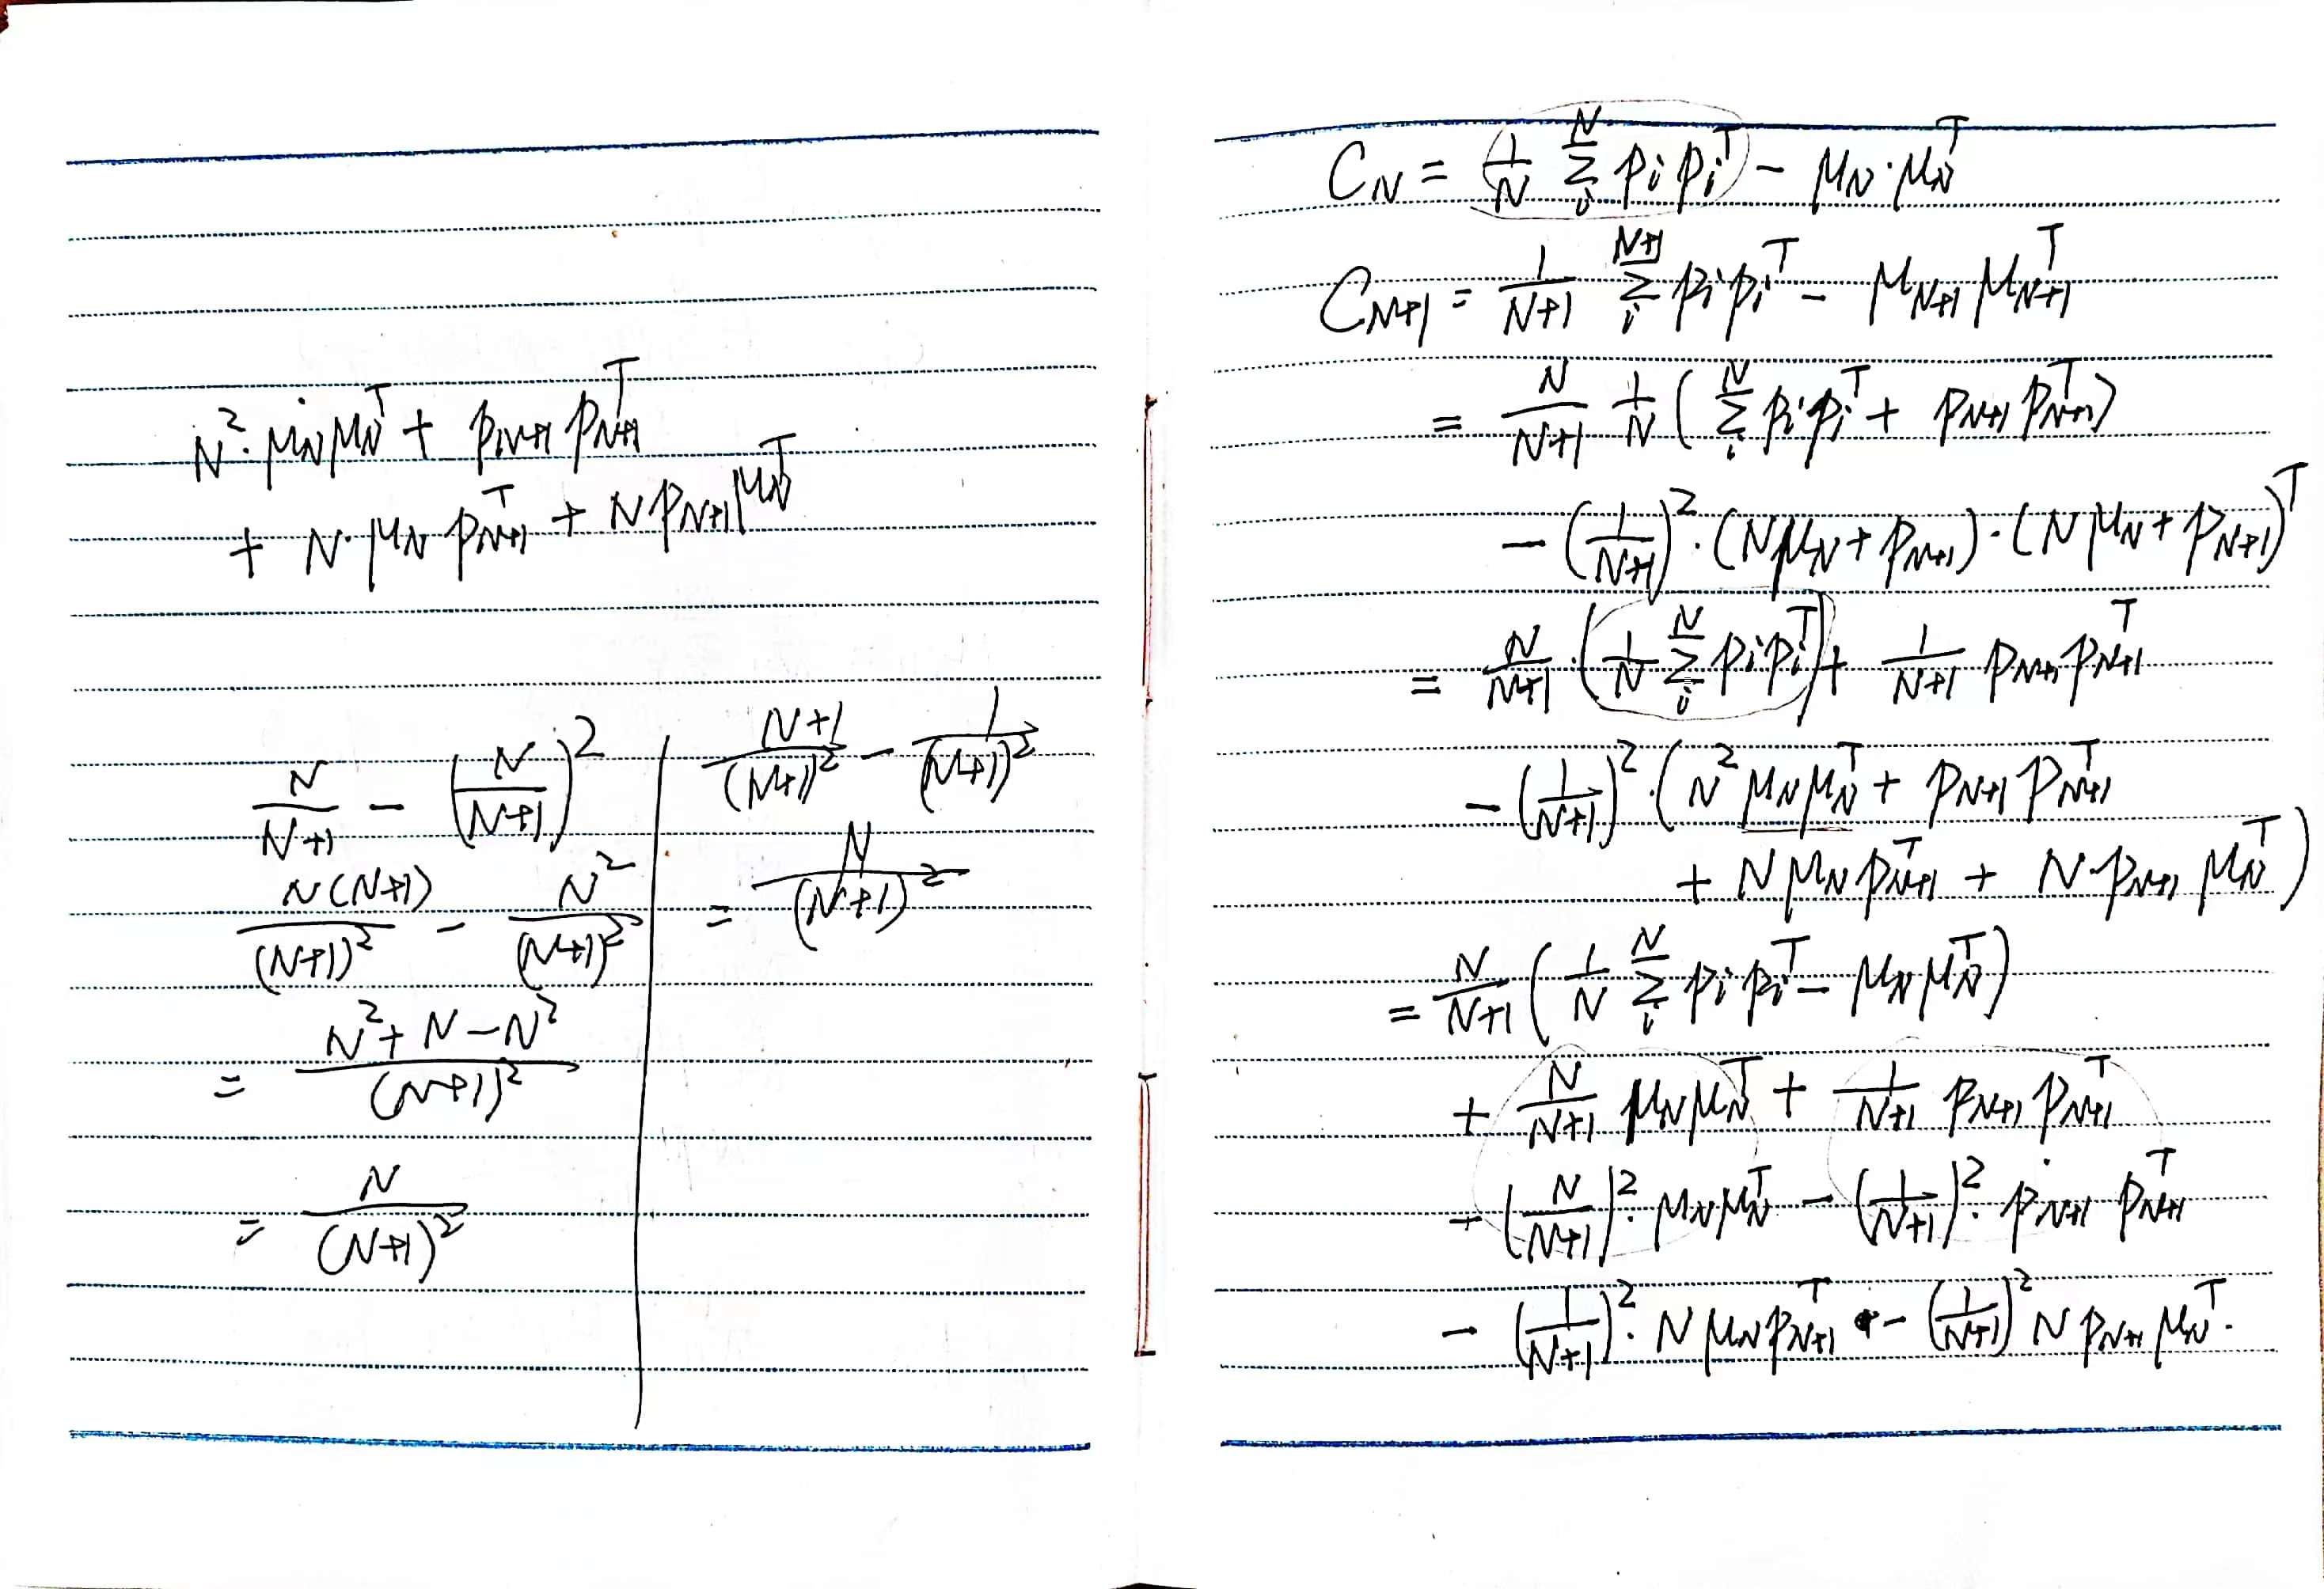 N²·μ_N μ_N^T + p_{N+1} p_{N+1}^T
+ N·μ_N p_{N+1}^T + N p_{N+1} μ_N^T
N/(N+1) − (N/(N+1))²
N(N+1)/(N+1)² − N²/(N+1)²
= (N²+N−N²)/(N+1)²
= N/(N+1)²
(N+1)/(N+1)² − 1/(N+1)²
= N/(N+1)²
C_N = 1/N Σ_i^N p_i p_i^T − μ_N·μ_N^T
C_{N+1} = 1/(N+1) Σ_i^{N+1} p_i p_i^T − μ_{N+1} μ_{N+1}^T
= N/(N+1) 1/N (Σ_i^N p_i p_i^T + p_{N+1} p_{N+1}^T)
− (1/(N+1))²·(Nμ_N + p_{N+1})·(Nμ_N + p_{N+1})^T
= N/(N+1)·(1/N Σ_i^N p_i p_i^T) + 1/(N+1) p_{N+1} p_{N+1}^T
− (1/(N+1))²·(N² μ_N μ_N^T + p_{N+1} p_{N+1}^T
+ N μ_N p_{N+1}^T + N·p_{N+1} μ_N^T)
= N/(N+1) (1/N Σ_i^N p_i p_i^T − μ_N μ_N^T)
+ N/(N+1) μ_N μ_N^T + 1/(N+1) p_{N+1} p_{N+1}^T
− (N/(N+1))²·μ_N μ_N^T − (1/(N+1))²·p_{N+1} p_{N+1}^T
− (1/(N+1))²·N μ_N p_{N+1}^T − (1/(N+1))² N p_{N+1} μ_N^T.